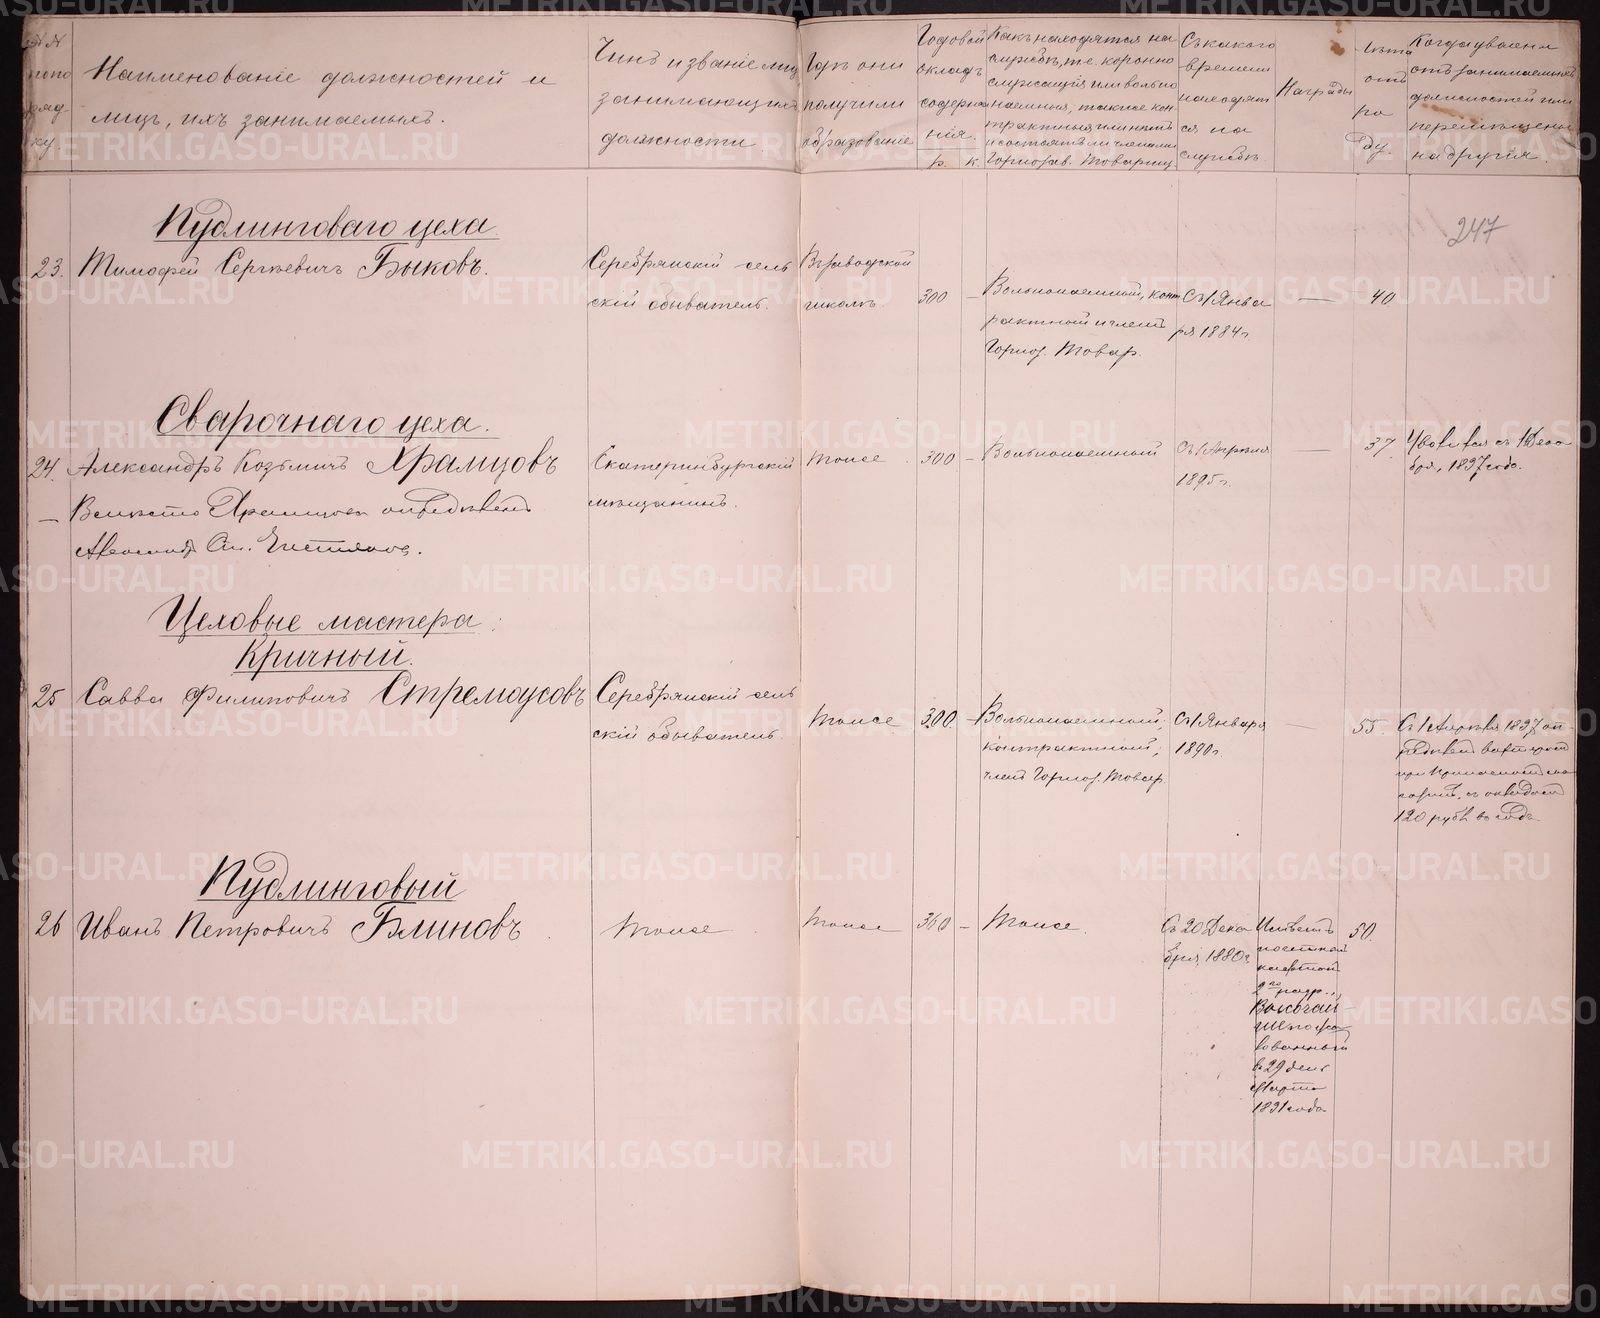 №№
по по
ряд
ку.
Наименованіе должностей и
лицъ, ихъ занимаемыхъ.
Чинъ и званіе лицъ
занимающихъ
должности.
Гдѣ они
получили
образованіе
Годовой
окладъ
содержа
нія.
р. к
Какъ находятся на
службѣ, т.е. коронно
служащія или вольно
наемныя, также кон
трактныя или нѣтъ
и состоятъ ли членами
Горнозав. Товарищ.
Съ какого
времени
находят
ся на
службѣ.
Награды
Лѣта
отъ
ро
ду.
Когда уволены
отъ занимаемыхъ
должностей или
перемѣщены
на другія.
247
Пудлинговаго цеха.
23. Тимофей Сергѣевичъ Быковъ.
Серебрянскій сель
скій обыватель.
Въ заводской
школѣ.
300 —
Вольнонаемный, конт
рактный и членъ
Горноз. Товар.
Съ 1 Янва
ря 1884 г.
—
40.
Сварочнаго цеха.
24. Александръ Козьмичъ Храмцовъ
Екатеринбургскій
мѣщанинъ.
Тоже
300 —
Вольнонаемный
Съ 1 Апрѣля
1895 г.
—
37.
Уволился съ 1 Дека
бря, 1897 года.
— Вмѣсто Храмцова опредѣленъ
Цеховые мастера:
Кричный.
25 Савва Филиповичъ Стремоусовъ
Серебрянскій сель
скій обыватель.
Тоже
300 —
Вольнонаемный,
контрактный,
членъ Горноз. Товар.
Съ 1 Января
1890 г.
—
55.
Съ 1 Апрѣля 1897 оп-
редѣленъ
при
съ окладомъ
120 рубл. въ годъ.
Пудлинговый
26 Иванъ Петровичъ Блиновъ.
Тоже
Тоже
360 —
Тоже.
Съ 20 Дека
бря, 1880 г.
Имѣетъ
почетный
кафтанъ
2го разр.,
Высочай
ше пожа
лованный
въ 29 день
Марта
1891 года
50.
METRIKI.GASO-URAL.RU